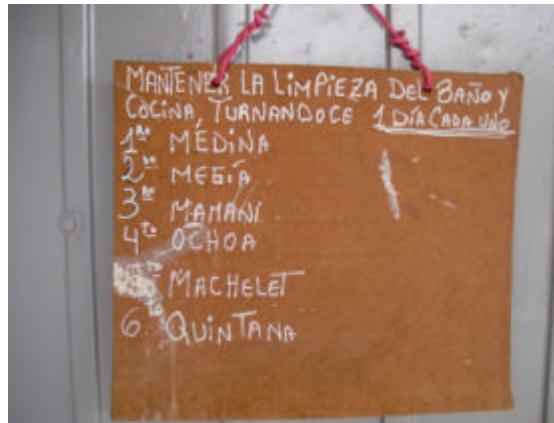 MANTENER LA LIMPIEZA DEL BAÑO Y
COCINA, TURNANDOCE 1 DÍA CADA UNO
1ro MÉDINA
2do MEGÍA
3ro MAMANÍ
4to OCHOA
MACHELET
6. QUINTANA